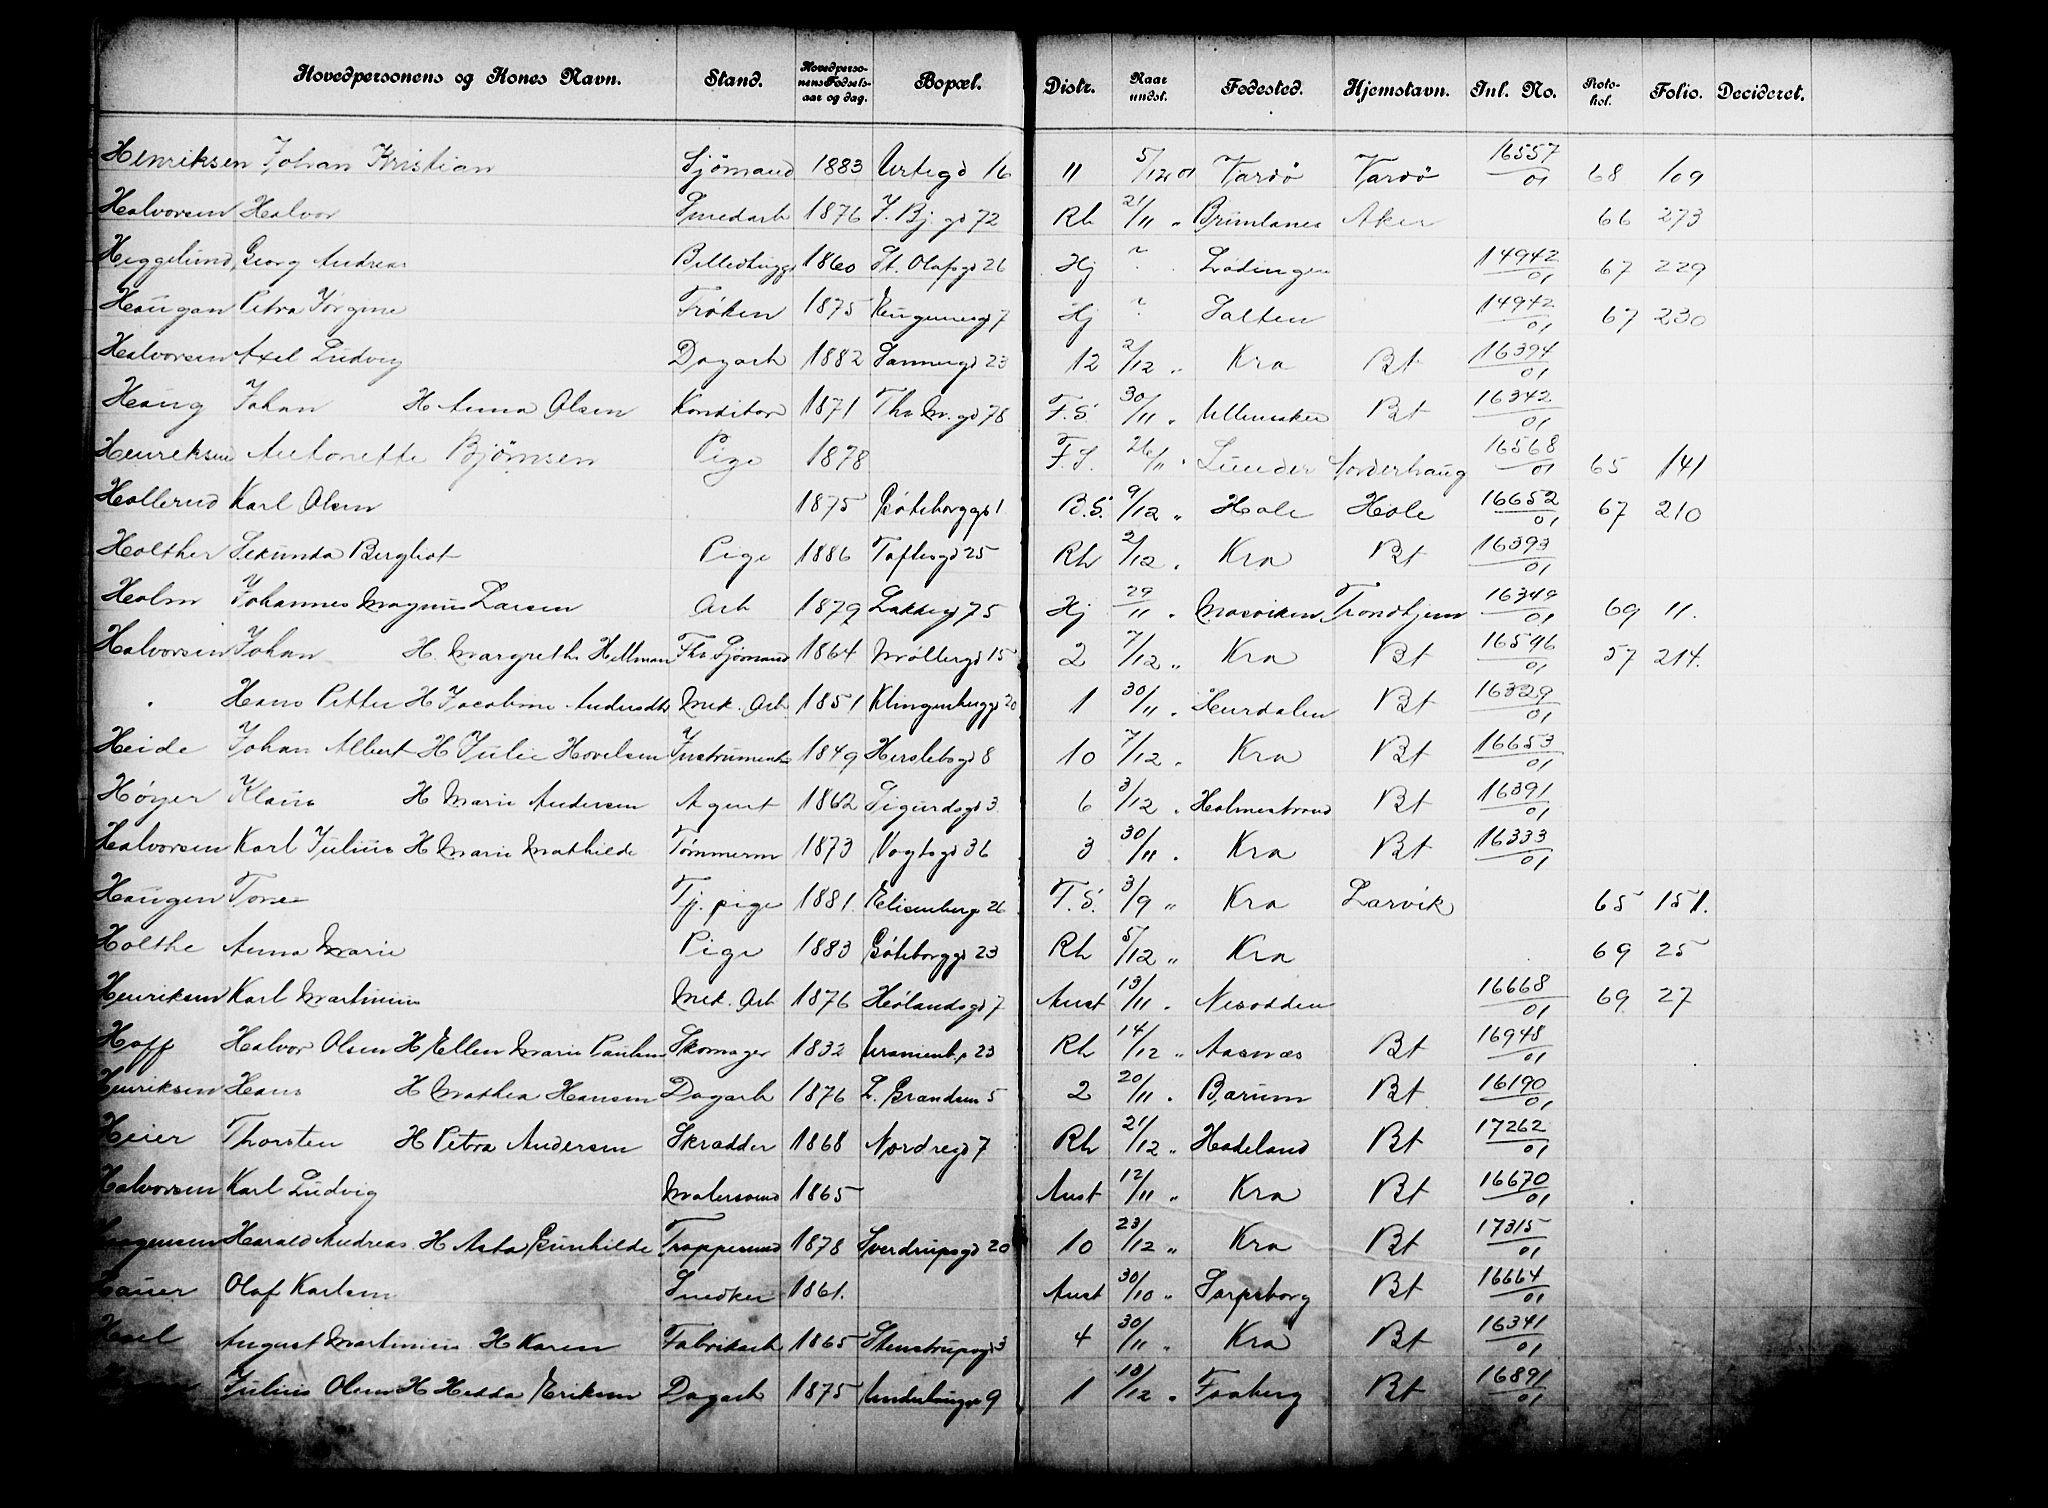 Hovedpersonens og Kones Navn. Stand. Hovedpersonens Fødselsaar og dag. Bopæl. Distr. Naar undst. Fødested. Hjemstavn. Inl. No. Protokol. Folio. Decideret.
Henriksen Johan Kristian Sjømand 1883 Urtegd 16 11 5/12 01 Vardø Vardø 16557/01 68 109
Halvorsen Halvor Smedarb 1876 J. Bj. gd 72 Rh 21/11 " Brunlanes Aker 66 273
Heggelund, Georg Andreas Billedhugge 1860 St. Olafsgd 26 Hj ? Lødingen 14942/01 67 229
Haugan Petra Jørgine Frøken 1875 Eugeniesgd 7 Hj ? Salten 14942/01 67 230
Halvorsen Axel Ludvig Dagarb 1882 Sannergd 23 12 2/12 " Kra Bt 16394/01
Haug Johan H Anna Olsen Konditor 1871 Th. M. gd 78 F.S. 30/11 " Ullensaker Bt 16342/01
Henriksen Antonette Bjørnsen Pige 1878 F.S. 26/11 " Lunder Norderhaug 16568/01 65 141
Hollerud Karl Olsen 1875 Gøteborggd 1 B.S. 9/12 " Hole Hole 16652/01 67 210
Holther Sekunda Bergliot Pige 1886 Toftesgd 25 Rh 2/12 " Kra Bt 16393/01
Holm Johannes Magnus Larsen Arb 1879 Lakkegd 75 Hj 29/11 " Mosviken Trondhjem 16349/01 69 11.
Halvorsen Johan H. Margrethe Hellman Fhv Sjømand 1864 Møllergd 15 2 7/12 " Kra Bt 16596/01 57 214.
" Hans Petter H Jacobine Andersdtr Mek. Arb 1851 Klingenberggd 20 1 30/11 " Hurdalen Bt 16329/01
Heide Johan Albert H Julie Hovelsen Instrumentm 1849 Herslebsgd 8 10 7/12 " Kra Bt 16653/01
Høyer Klaus H Marie Andersen Agent 1862 Sigurdsgd 3 6 3/12 " Holmestrand Bt 16391/01
Halvorsen Karl Julius H Marie Mathilde Tømmerm 1873 Vogtsgd 36 3 30/11 " Kra Bt 16333/01
Haugen Tone Tj. pige 1881. Elisenberg 26 F.S. 3/9 " Kra Larvik 65 151.
Holthe Anna Marie Pige 1883 Gøteborggd 23 Rh 5/12 " Kra 69 25
Henriksen Karl Martinius Mek. Arb 1876 Hølandsgd 7 Aust 13/11 " Nesodden 16668/01 69 27
Hoff Halvor Olsen H Ellen Marie Paulsen Skomager 1832 Uranienb. 23 Rh 14/12 " Aasnæs Bt 16948/01
Henriksen Hans H Mathea Hansen Dagarb 1876 L. Brandsen 5 2 20/11 " Bærum Bt 16190/01
Heier Thorsten H Petra Andersen Skrædder 1868 Nordregd 7 Rh 21/12 " Hadeland Bt 17262/01
Halvorsen Karl Ludvig Malersvend 1865 Aust 12/11 " Kra Bt 16670/01
Haagensen Harald Andreas H Asta Gunhilde Trappesvend 1878 Sverdrupsgd 20 10 23/12 " Kra Bt 17315/01
Olaf Karlsen Snedker 1861. Aust 30/10 " Sarpsborg Bt 16664/01
August Martinius H Karen Fabrikarb 1865 Stenstrupsgd 3 4 30/11 " Kra Bt 16341/01
Julius Olsen H Hedda Eriksen Dagarb 1875 Underhaugsv 9 1 10/12 " Faaberg Bt 16891/01